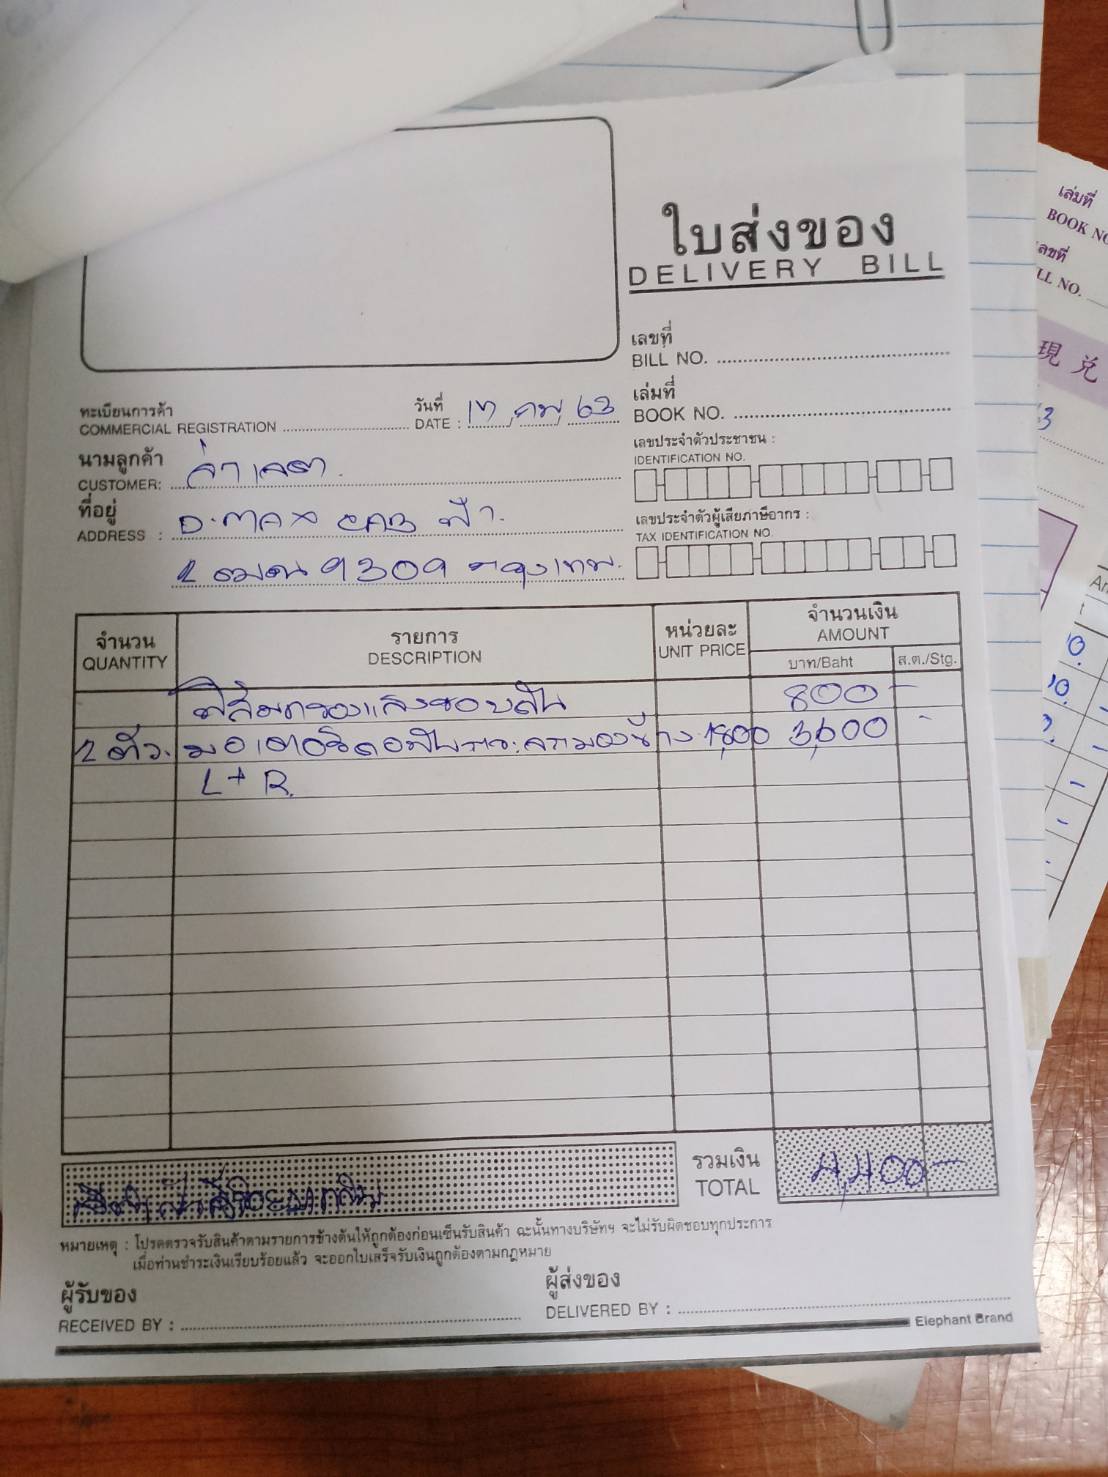 ใบส่งของ
DELIVERY BILL
เลขที่
BILL NO.
เล่มที่
BOOK NO.
ทะเบียนการค้า
COMMERCIAL REGISTRATION
วันที่
DATE : 17 กพ 63
นามลูกค้า
CUSTOMER:
ที่อยู่
ADDRESS : D-MAX CAB ฟ้า
9309 กรุงเทพ.
เลขประจำตัวประชาชน :
IDENTIFICATION NO.
เลขประจำตัวผู้เสียภาษีอากร :
TAX IDENTIFICATION NO.
จำนวน รายการ หน่วยละ จำนวนเงิน
QUANTITY DESCRIPTION UNIT PRICE AMOUNT
บาท/Baht ส.ต./Stg.
ฟิล์มกรองแสงรอบคัน 800 -
2 ตัว. 1800 3,600 -
L + R
รวมเงิน
TOTAL 4,400 -
หมายเหตุ : โปรดตรวจรับสินค้าตามรายการข้างต้นให้ถูกต้องก่อนเซ็นรับสินค้า ฉะนั้นทางบริษัทฯ จะไม่รับผิดชอบทุกประการ
เมื่อท่านชำระเงินเรียบร้อยแล้ว จะออกใบเสร็จรับเงินถูกต้องตามกฎหมาย
ผู้รับของ
RECEIVED BY :
ผู้ส่งของ
DELIVERED BY :
Elephant Brand
เล่มที่
BOOK NO
ลขที่
LL NO.
現 兑